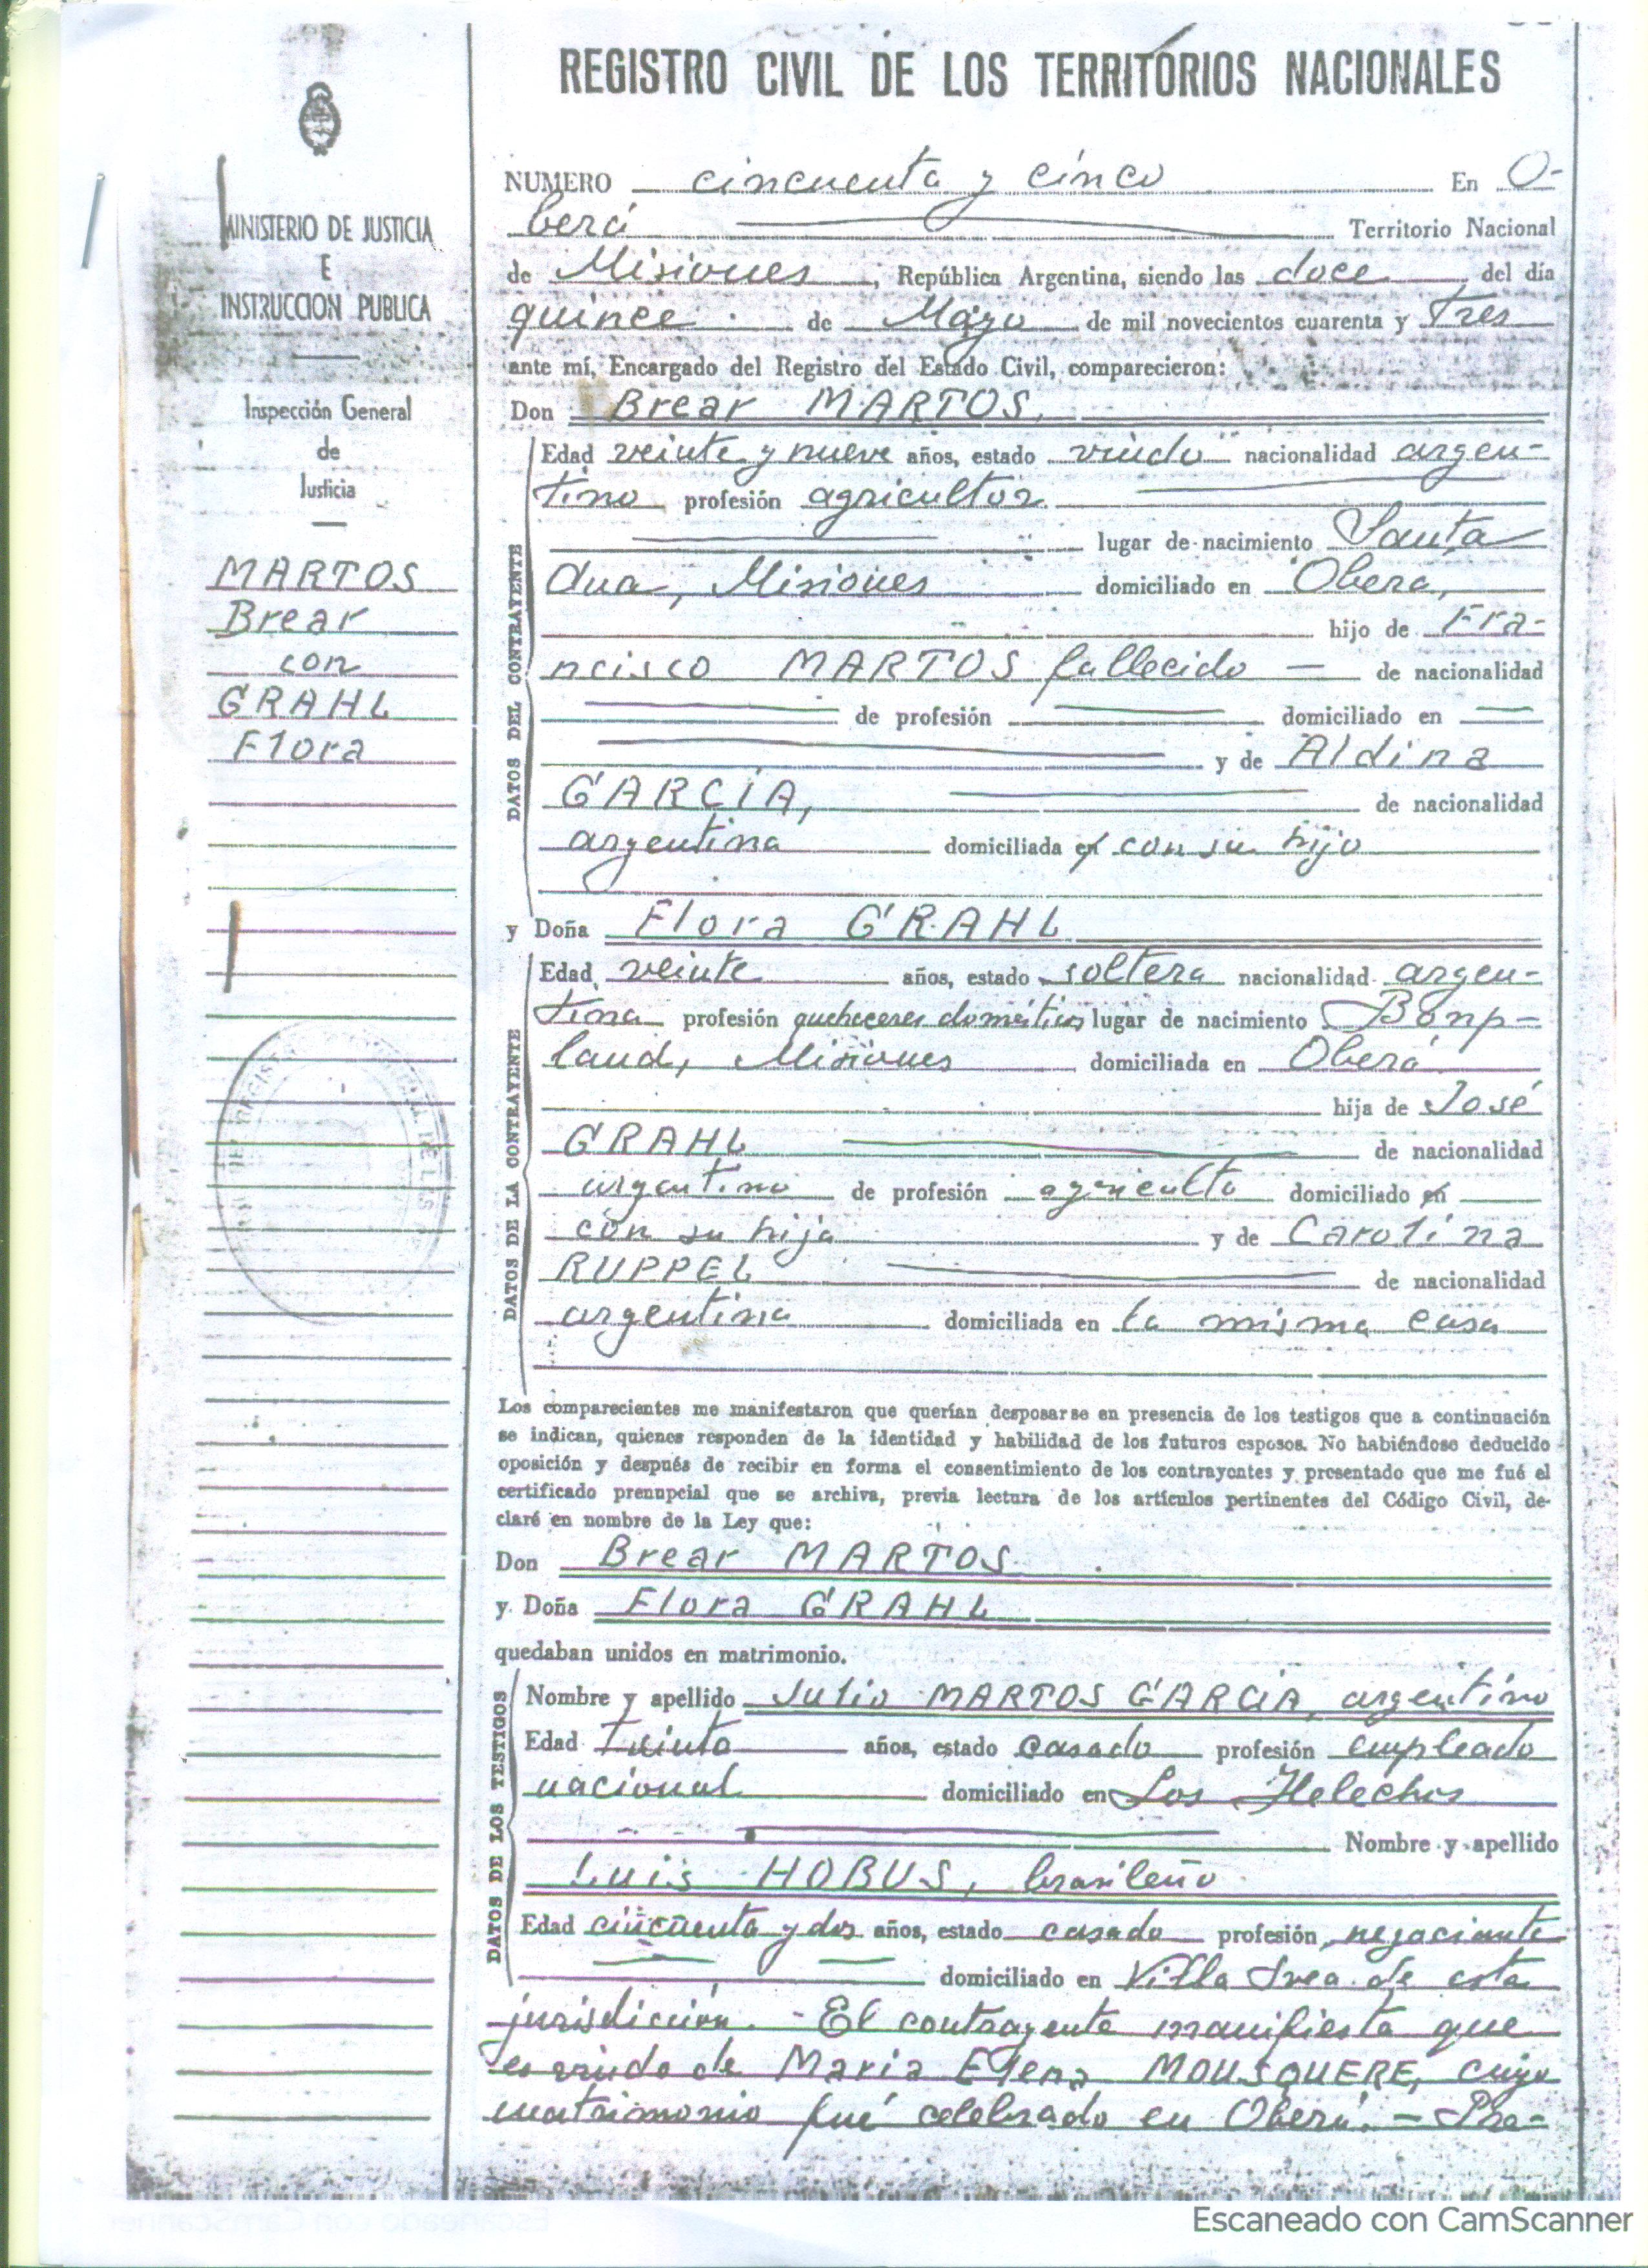 REGISTRO CIVIL DE LOS TERRITORIOS NACIONALES
MINISTERIO DE JUSTICIA
E
INSTRUCCION PUBLICA
Inspección General
de
Justicia
MARTOS
Brear
con
GRAHL
Flora
NUMERO cincuenta y cinco En O-
berá Territorio Nacional
de Misiones, República Argentina, siendo las doce del día
quince de Mayo de mil novecientos cuarenta y tres
ante mí, Encargado del Registro del Estado Civil, comparecieron:
Don Brear MARTOS.
DATOS DEL CONTRAYENTE
Edad veinte y nueve años, estado viudo nacionalidad argen-
tino profesión agricultor
lugar de nacimiento Santa
Ana, Misiones domiciliado en Oberá,
hijo de Fra-
ncisco MARTOS fallecido — de nacionalidad
de profesión domiciliado en
y de Aldina
GARCÍA, de nacionalidad
argentina domiciliada en con su hijo
y Doña Flora GRAHL
DATOS DE LA CONTRAYENTE
Edad veinte años, estado soltera nacionalidad argen-
tina profesión quehaceres domésticos lugar de nacimiento Bonp-
land, Misiones domiciliada en Oberá
hija de José
GRAHL de nacionalidad
argentino de profesión agriculto domiciliado en
con su hija y de Carolina
RUPPEL de nacionalidad
argentina domiciliada en la misma casa
Los comparecientes me manifestaron que querían desposarse en presencia de los testigos que a continuación
se indican, quienes responden de la identidad y habilidad de los futuros esposos. No habiéndose deducido
oposición y después de recibir en forma el consentimiento de los contrayentes y presentado que me fué el
certificado prenupcial que se archiva, previa lectura de los artículos pertinentes del Código Civil, de-
claré en nombre de la Ley que:
Don Brear MARTOS
y Doña Flora GRAHL
quedaban unidos en matrimonio.
DATOS DE LOS TESTIGOS
Nombre y apellido Julio MARTOS GARCIA, argentino
Edad años, estado casado profesión empleado
nacional domiciliado en Los Helechos
Nombre y apellido
Luis HOBUS, brasileño
Edad cincuenta y dos años, estado casado profesión negociante
domiciliado en Villa Svea de esta
jurisdicción. - El contrayente manifiesta que
es viudo de Maria Elena MOUSQUERE, cuyo
matrimonio fué celebrado en Oberá. - Pre-
Escaneado con CamScanner